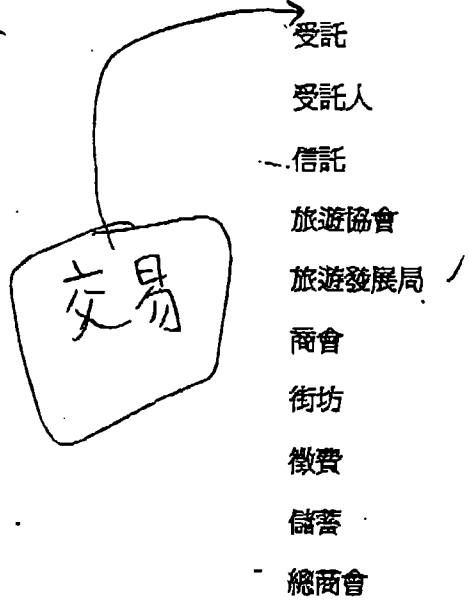 受託
受託人
信託
旅遊協會
旅遊發展局
商會
街坊
徵費
儲蓄
總商會
交易